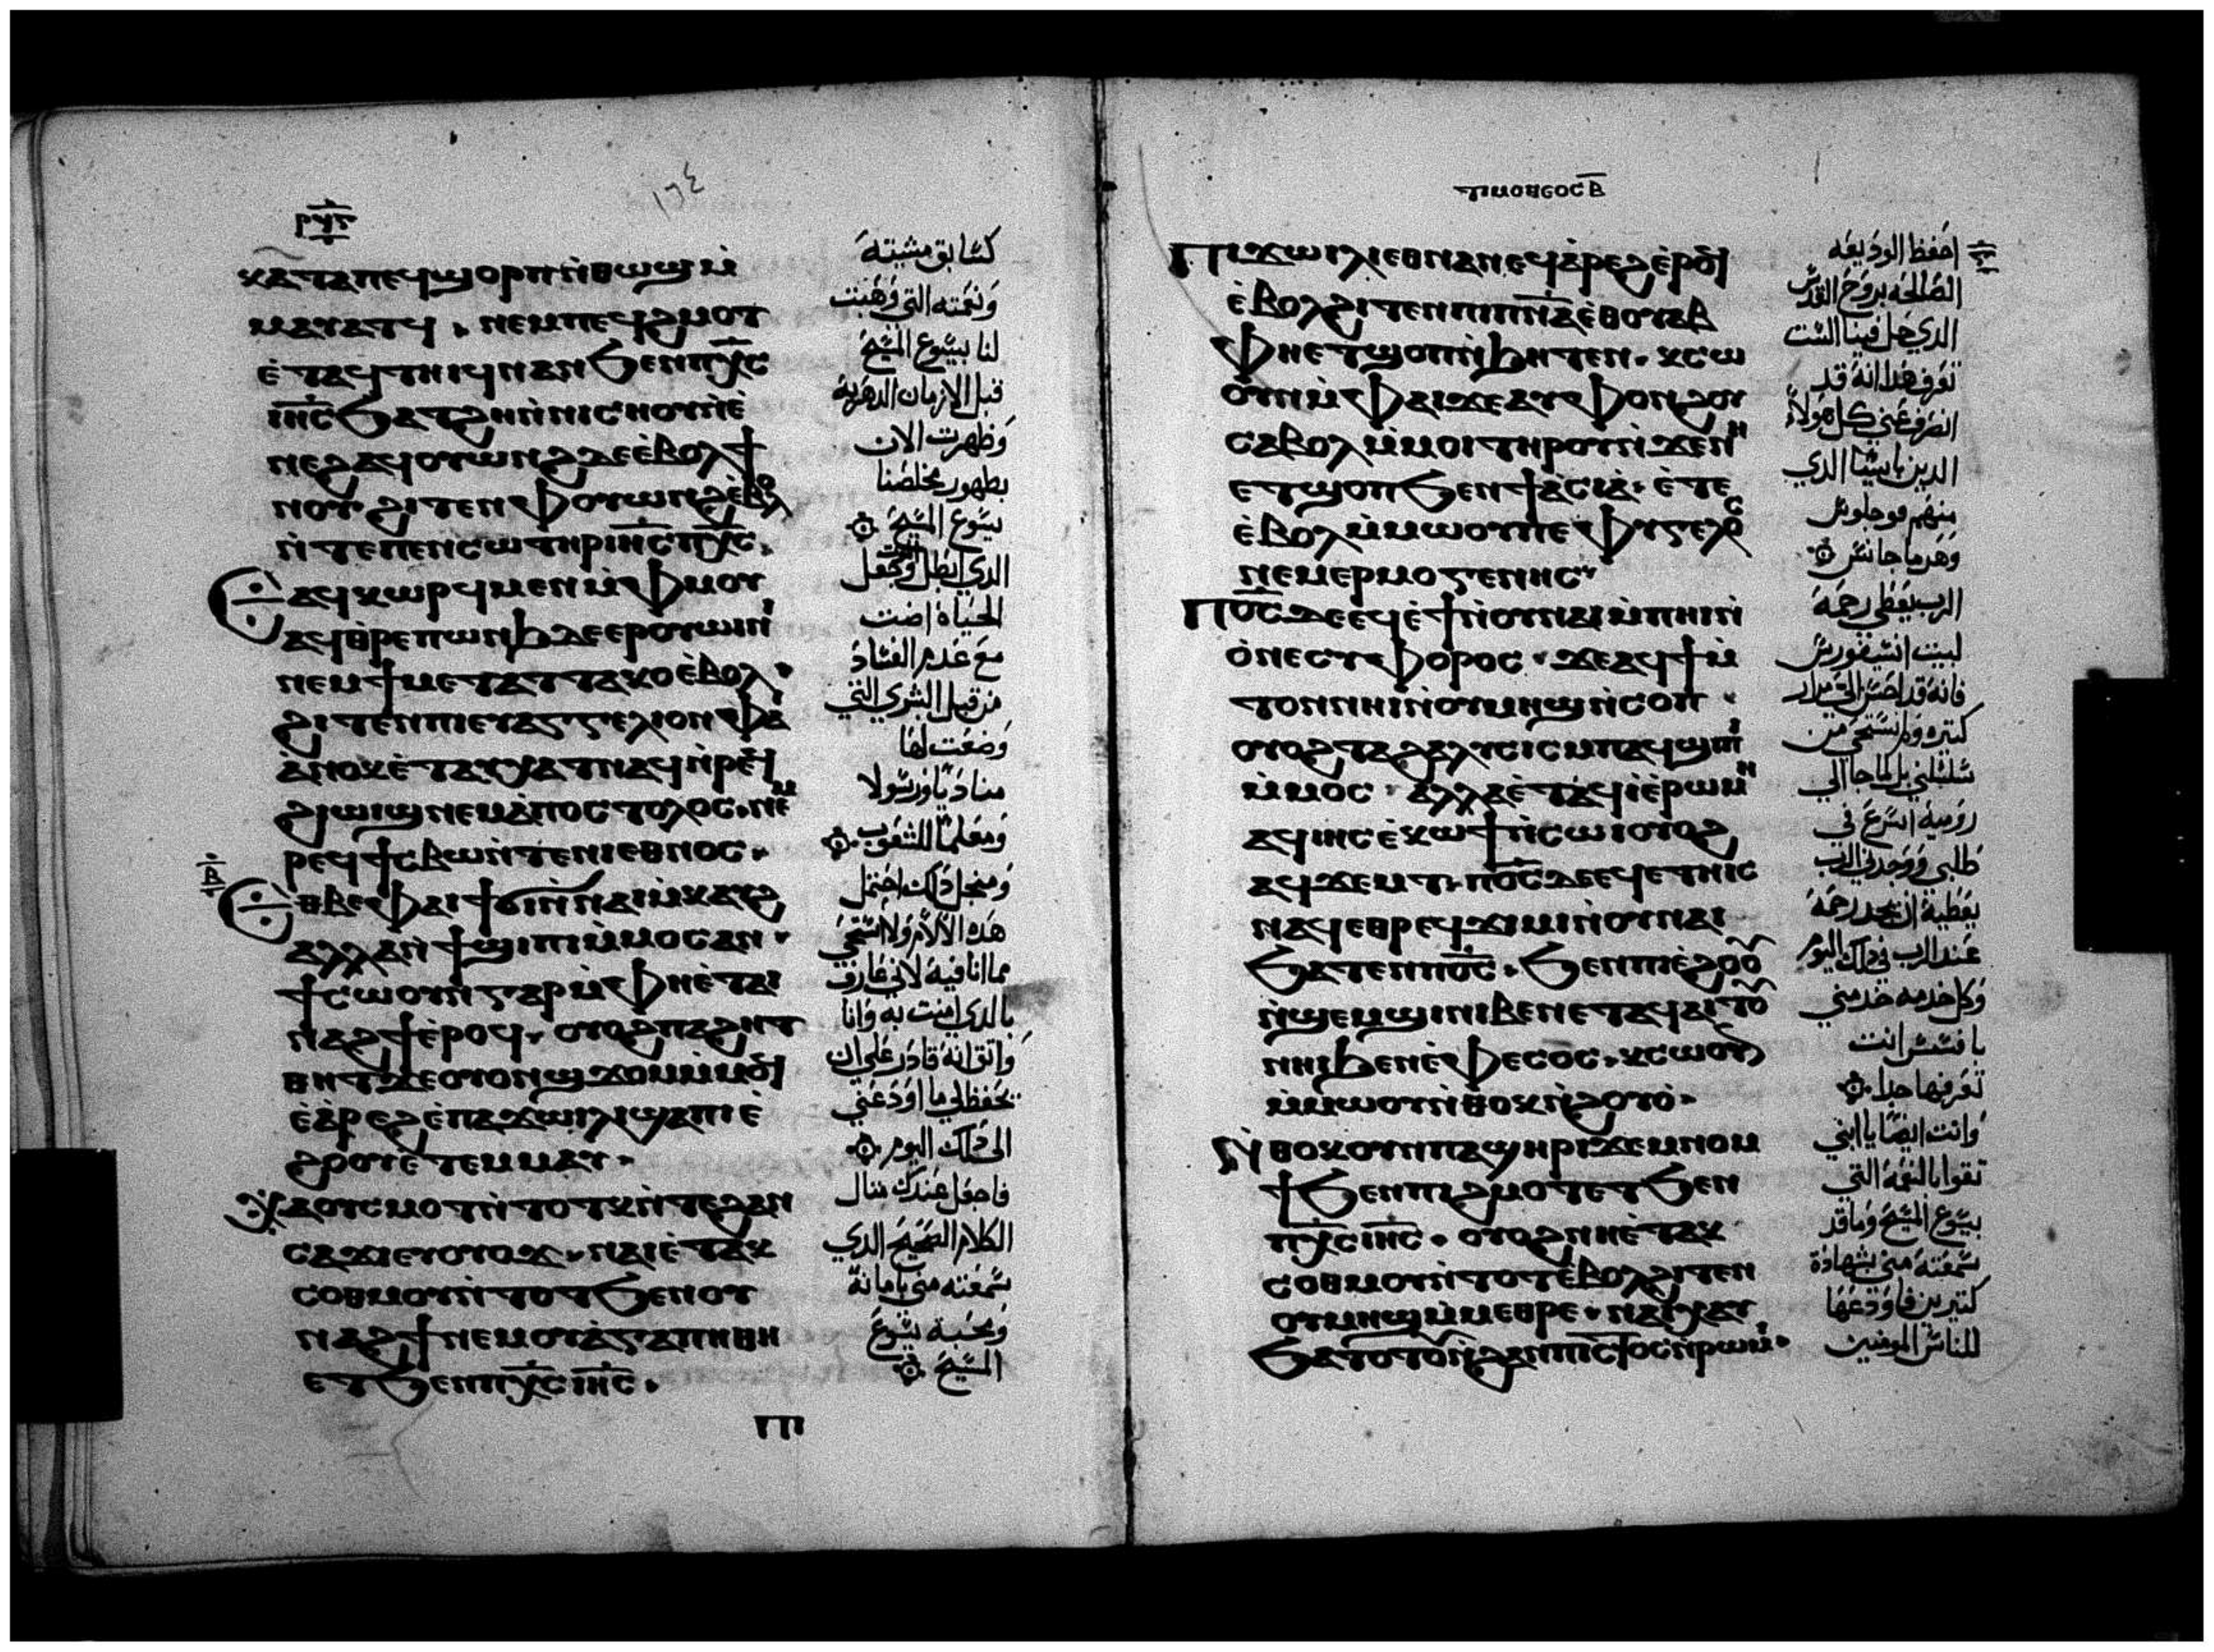 ⲣϥⲅ
١٦٤
ⲕⲁⲧⲁⲡⲉϥϣⲟⲣⲡⲛ̀ⲑⲱϣⲙ̀
ⲙⲁⲩⲁⲧϥ . ⲛⲉⲙⲡⲉϥϩⲙⲟⲧ
ⲉ̀ⲧⲁϥⲧⲏⲓϥⲛⲁⲛϧⲉⲛⲡⲭ̅ⲥ
ⲓⲏ̅ⲥϧⲁⲧϩⲏⲛ̀ⲛⲓⲥⲏⲟⲩⲛ̀ⲉ̀
ⲛⲉϩⲁϥⲟⲩⲱⲛϩⲇⲉⲉ̀ⲃⲟⲗϯ
ⲛⲟⲩ ϩⲓⲧⲉⲛⲫⲟⲩⲱⲛϩⲉ̀ⲃⲟⲗ
ⲛ̀ⲧⲉⲡⲉⲛⲥⲱⲧⲏⲣⲓⲏ̅ⲥⲡⲭ̅ⲥ .
ⲁϥⲕⲱⲣϥⲙⲉⲛⲙ̀ⲫⲙⲟⲩ
ⲁϥⲑⲣⲉⲡⲱⲛϧⲇⲉⲉⲣⲟⲩⲱⲓⲛⲓ
ⲛⲉⲙϯⲙⲉⲧⲁⲧⲧⲁⲕⲟⲉ̀ⲃⲟⲗ .
ϩⲓⲧⲉⲛⲡⲓⲉⲩⲁⲅⲅⲉⲗⲓⲟⲛⲫⲁⲓ
ⲁ̀ⲛⲟⲕⲉ̀ⲧⲁⲩⲭⲁⲧⲛⲁϥⲛ̀ⲣⲉϥ
ϩⲓⲱⲓϣⲛⲉⲙⲁ̀ⲡⲟⲥⲧⲟⲗⲟⲥ . ⲛⲉⲙ
ⲣⲉϥϯⲥⲃⲱⲛ̀ⲧⲉⲛⲓⲉⲑⲛⲟⲥ .
ⲃ̅
ⲉⲑⲃⲉⲫⲁⲓϯϭⲓⲛ̀ⲛⲁⲓⲙ̀ⲕⲁⲩϩ
ⲁⲗⲗⲁⲛ̀ϯϣⲓⲡⲓⲙ̀ⲙⲟⲥⲁⲛ .
ϯⲥⲱⲟⲩⲛⲅⲁⲣⲙ̀ⲫⲏⲉ̀ⲧⲁⲓ
ⲛⲁϩϯⲉ̀ⲣⲟϥ . ⲟⲩⲟϩⲡⲁϩⲏⲧ
ⲑⲏⲧϫⲉⲟⲩⲟⲛϣϫⲟⲙⲙ̀ⲙⲟϥ
ⲉ̀ⲁ̀ⲣⲉϩⲉ̀ⲡⲁϫⲱⲓⲗⲓϣⲁⲡⲓⲉ̀
ϩⲟⲟⲩⲉ̀ⲧⲉⲙⲙⲁⲩ .
ⲁⲟⲩⲥⲙⲟⲧⲛ̀ⲧⲟⲧⲕⲛ̀ⲧⲉϩⲁⲛ
ⲥⲁϫⲓⲉⲩⲟⲩⲟϫ . ⲛⲁⲓⲉ̀ⲧⲁⲕ
ⲥⲟⲑⲙⲟⲩⲛ̀ⲧⲟⲧϧⲉⲛⲟⲩ
ⲛⲁϩϯⲛⲉⲙⲟⲩⲁ̀ⲅⲁⲡⲏⲑⲏ
ⲉⲧϧⲉⲛⲡⲭ̅ⲥⲓⲏ̅ⲥ .
كسابق مشيته
ونعمته التي وهبت
لنا بيسوع المسيح
قبل الازمان الدهريه
وظهرت الان
بظهور مخلصنا
يسوع المسيح
الدي ابطل الموت وجعل
الحياه اضت
مع عدم الفساد
من قبل البشري التي
وضعت لها
مناديا ورسولا
ومعلما للشعوب
ومنجل دلك احتمل
هده الالام ولا استحي
مما انا فيه لاني عارف
بالدي امنت به وانا
واتق انه قادر علي ان
يحفظ لي ما اودعني
الي دلك اليوم
فاجعل عندك متال
الكلام الصحيح الدي
سمعته مني بامانة
ومحبة يسوع
المسيح
ⲡⲓ
ⲧⲓⲙⲟⲑⲉⲟⲥ ⲃ̅
ⲡⲓϫⲱⲓⲗⲓⲉⲑⲛⲁⲛⲉϥⲁ̀ⲣⲉϩⲉ̀ⲣⲟϥ
ⲉ̀ⲃⲟⲗϩⲓⲧⲉⲛⲡⲓⲡⲛ̅ⲁⲉ̀ⲑⲟⲩⲁⲃ
ⲫⲏⲉⲧϣⲟⲡⲛ̀ϧⲏⲧⲉⲛ . ⲕⲥⲱ
ⲟⲩⲛⲙ̀ⲫⲁⲓϫⲉⲁⲩⲫⲟⲛϩⲟⲩ
ⲥⲁⲃⲟⲗⲙ̀ⲙⲟⲓⲧⲏⲣⲟⲩⲛ̀ϫⲉⲛⲏ
ⲉⲧϣⲟⲡϧⲉⲛϯⲁ̀ⲥⲓⲁ̀ . ⲉ̀ⲧⲉ
ⲉ̀ⲃⲟⲗⲙ̀ⲙⲱⲟⲩⲡⲉⲫⲩⲅⲉⲗⲟⲥ
ⲛⲉⲙⲉⲣⲙⲟⲅⲉⲛⲏⲥ .
ⲡⲟ̅ⲥⲇⲉⲉϥⲉ̀ϯⲛ̀ⲟⲩⲛⲁⲓⲙ̀ⲡⲏⲓⲛ̀
ⲟ̀ⲛⲉⲥⲩⲫⲟⲣⲟⲥ . ϫⲉⲁϥϯⲙ̀
ⲧⲟⲛⲛⲏⲓⲛ̀ⲟⲩⲙⲏϣⲛ̀ⲥⲟⲡ .
ⲟⲩⲟϩⲧⲁϩⲁⲗⲩⲥⲓⲥⲙⲡⲁϥϣⲓⲡⲓ
ⲙ̀ⲙⲟⲥ . ⲁⲗⲗⲁⲉ̀ⲧⲁϥⲓ̀ⲉ̀ⲣⲱⲙⲏ
ⲁϥⲓⲏⲥⲉ̀ⲕⲱϯⲛ̀ⲥⲱⲓⲟⲩⲟϩ
ⲁϥϫⲉⲙⲧ . ⲡⲟ̅ⲥⲇⲉⲉϥⲉⲧⲏⲓⲥ
ⲛⲁϥⲉⲑⲣⲉϥϫⲓⲙⲓⲛ̀ⲟⲩⲛⲁⲓ
ϧⲁⲧⲉⲛⲡⲟ̅ⲥ . ϧⲉⲛⲡⲓⲉ̀ϩⲟⲟⲩ
ⲛ̀ϣⲉⲙϣⲓⲛⲓⲃⲉⲛⲉⲧⲁϥⲁⲓⲧⲟⲩ
ⲛⲏⲓϧⲉⲛⲉ̀ⲫⲉⲥⲟⲥ . ⲕⲥⲱⲟⲩⲛ
ⲙ̀ⲙⲱⲟⲩⲛ̀ⲑⲟⲕⲛ̀ϩⲟⲩⲟ̀ .
ⲛ̀ⲑⲟⲕⲟⲩⲛⲡⲁϣⲏⲣⲓϫⲉⲙⲛⲟⲙ
ϯϧⲉⲛⲡⲓϩⲙⲟⲧⲉⲧϧⲉⲛ
ⲡⲭ̅ⲥⲓⲏ̅ⲥ . ⲟⲩⲟϩⲛⲏⲉ̀ⲧⲁⲕ
ⲥⲟⲑⲙⲟⲩⲛ̀ⲧⲟⲧⲉ̀ⲃⲟⲗϩⲓⲧⲉⲛ
ⲟⲩⲙⲏϣⲙ̀ⲙⲉⲑⲣⲉ . ⲛⲁⲓⲭⲁⲩ
ϧⲁⲧⲟⲧⲟⲩⲛ̀ϩⲁⲛⲡⲓⲥⲧⲟⲥⲛ̀ⲣⲱⲙⲓ .
احفظ الوديعه
الصالحه بروح القدس
الدي حل فينا الست
تعرف هدا انه قد
انصرف عني كل هولاء
الدين باسيا الدي
منهم فوجلوس
وهرماجانس
الرب يعطي رحمة
لبيت انسيفورس
فانه قد احسن الي مرار
كتيره ولم يستحي من
سلسلتي بل لما جا الي
روميه اسرع في
طلبي ووجدني الرب
يعطيه ان يجد رحمة
عند الرب في دلك اليوم
وكل خدمه خدمني
بافسس انت
تعرفها جدا
وانت ايضا يا ابني
تقوا بالنعمة التي
بيسوع المسيح وما قد
سمعته مني بشهادة
كتيرين فاودعها
للناس المومنين